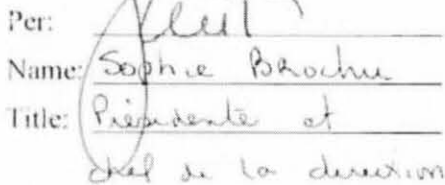 Per:
Name: Sophie Brochu
Title: Présidente et
chef de la direction